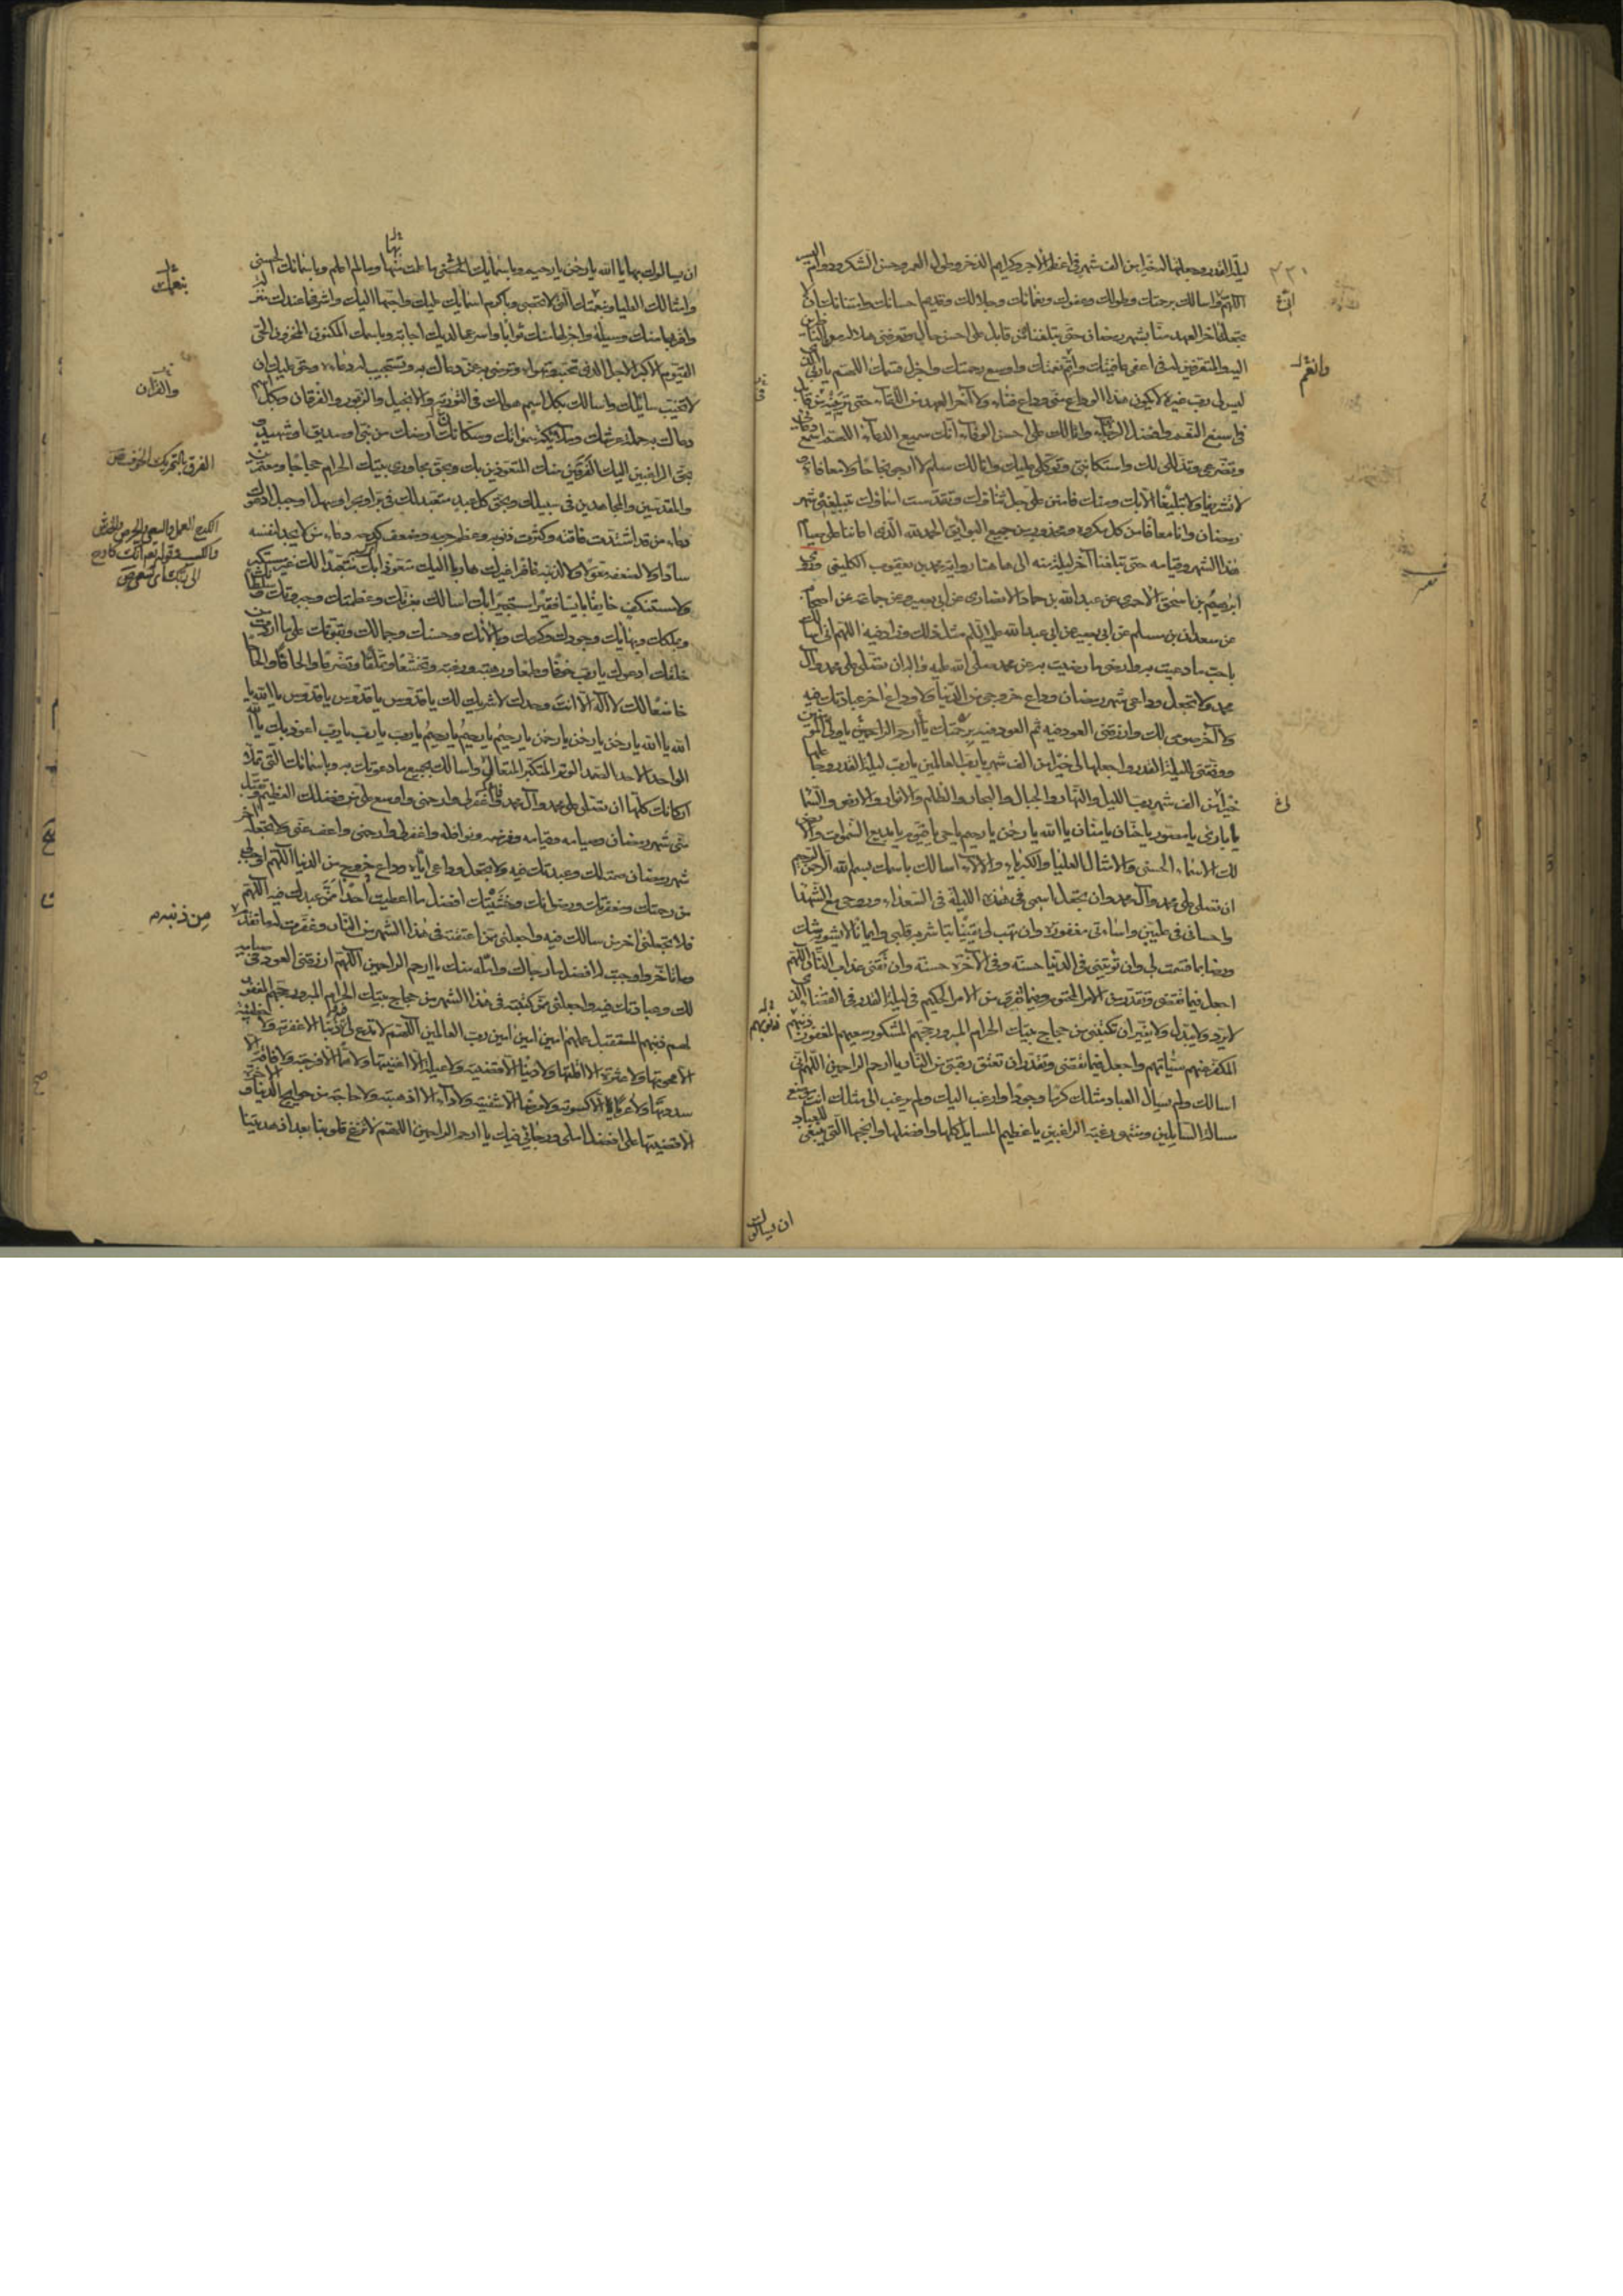 ليلة القدر وجعلتها له خيرا من الف شهر في اعظم الاجر وكرايم الذخر وطول العمر وحسن الشكر ودوام اليسر
اللهم واسالك برحمتك وطولك وعفوك ونعمائك وجلالك وقديم احسانك وامتنانك ان لا
تجعله آخر العهد منا بشهر رمضان حتى تبلغناه من قابل على احسن حال وتعرفني هلاله مع الناظرين
اليه والمتعرفين له في اعفى عافيتك واتم نعمتك واوسع رحمتك واجزل قسمك اللهم يا ربي الذي
ليس لي رب غيره لا يكون هذا الوداع مني وداع فناء ولا آخر العهد من اللقاء حتى ترينيه من قابل
في اسبغ النعم وافضل الرجاء وانا لك على احسن الوفاء انك سميع الدعاء اللهم اسمع دعائي
وتضرعي وتذللي لك واستكانتي وتوكلي عليك وانا لك سلم لا ارجو نجاحا ولا معافاة
ولا تشريفا ولا تبليغا الا بك ومنك فامنن علي جل ثناؤك وتقدست اسماؤك بتبليغي شهر
رمضان وانا معافا من كل مكروه ومحذور من جميع البوائق الحمد لله الذي اعاننا على صيام
هذا الشهر وقيامه حتى بلغنا آخر ليلة منه الى هاهنا رواية محمد بن يعقوب الكليني وروى
ابرهيم بن اسحق الاحمري عن عبد الله بن حماد الانصاري عن ابي بصير وعن جماعة من اصحابه
عن سعدان بن مسلم عن ابي بصير عن ابي عبد الله عليه السلام مثل ذلك وزاد فيه اللهم اني اسالك
باحب ما دعيت به وارضى ما رضيت به عن محمد صلى الله عليه وآله ان تصلي على محمد وآل
محمد ولا تجعل وداعي شهر رمضان وداع خروجي من الدنيا ولا وداع آخر عبادتك فيه
ولا آخر صومي لك وارزقني العود فيه ثم العود فيه برحمتك يا ارحم الراحمين يا ولي المؤمنين
ووفقني لليلة القدر واجعلها لي خيرا من الف شهر يا رب العالمين يا رب ليلة القدر وجاعلها
خيرا من الف شهر رب الليل والنهار والجبال والبحار والظلم والانوار والارض والسماء
يا بارئ يا مصور يا حنان يا منان يا الله يا رحمن يا رحيم يا حي يا قيوم يا بديع السموات والارض
لك الاسماء الحسنى والامثال العليا والكبرياء والآلاء اسالك باسمك بسم الله الرحمن الرحيم
ان تصلي على محمد وآل محمد وان تجعل اسمي في هذه الليلة في السعداء وروحي مع الشهداء
واحساني في عليين واساءتي مغفورة وان تهب لي يقينا تباشر به قلبي وايمانا لا يشوبه شك
ورضا بما قسمت لي وان تؤتيني في الدنيا حسنة وفي الآخرة حسنة وان تقني عذاب النار اللهم
اجعل فيما تقضي وتقدر من الامر المحتوم وفيما تفرق من الامر الحكيم في ليلة القدر في القضاء الذي
لا يرد ولا يبدل ولا يغير ان تكتبني من حجاج بيتك الحرام المبرور حجهم المشكور سعيهم المغفور ذنبهم
المكفر عنهم سيئاتهم واجعل فيما تقضي وتقدر ان تعتق رقبتي من النار يا ارحم الراحمين اللهم اني
اسالك ولم يسال العباد مثلك كرما وجودا وارغب اليك ولم يرغب الى مثلك انت موضع
مسالة السايلين ومنتهى رغبة الراغبين يا عظيم المسايل كلها وافضلها وانجحها التي ينبغي للعباد
ان يسالوك
انى خ
وانعم
ان يسالوك بها يا الله يا رحمن يا رحيم وباسمائك الحسنى ما علمت منها وما لم اعلم وباسمائك الحسنى
وامثالك العليا ونعمتك التي لا تحصى وباكرم اسمائك عليك واحبها اليك واشرفها عندك منزلة
واقربها منك وسيلة واجزلها منك ثوابا واسرعها لديك اجابة وباسمك المكنون المخزون الحي
القيوم الاكبر الاجل الذي تحبه وتهواه وترضى به عن من دعاك به وتستجيب له دعاءه وحق عليك ان
لا تخيب سائلك واسالك بكل اسم هو لك في التورية والانجيل والزبور والفرقان وبكل اسم
دعاك به حملة عرشك وملائكة سمواتك وسكان ارضك من نبي او صديق او شهيد
بحق الراغبين اليك الفرقين منك المتعوذين بك وبحق مجاوري بيتك الحرام حجاجا ومعتمرين
والمقدسين والمجاهدين في سبيلك وبحق كل عبد متعبد لك في بر او بحر او سهل او جبل ادعوك
دعاء من قد اشتدت فاقته وكثرت ذنوبه وعظم جرمه وضعف كدحه دعاء من لا يجد لنفسه
سادا ولا لضعفه مقويا ولا لذنبه غافرا غيرك هاربا اليك متعوذا بك متعبدا لك غير مستكبر
ولا مستنكف خايفا بايسا فقيرا مستجيرا بك اسالك بعزتك وعظمتك وجبروتك وسلطانك
وبملكك وبهائك وجودك وكرمك وبآلائك وحسنك وجمالك وبقوتك على ما اردت من
خلقك ادعوك يا رب خوفا وطمعا ورهبة ورغبة وتخشعا وتملقا وتضرعا والحافا والحاحا
خاضعا لك لا اله الا انت وحدك لا شريك لك يا قدوس يا قدوس يا قدوس يا الله يا
الله يا الله يا رحمن يا رحمن يا رحمن يا رحيم يا رحيم يا رحيم يا رب يا رب يا رب اعوذ بك يا الله
الواحد الاحد الصمد الوتر المتكبر المتعال واسالك بجميع ما دعوتك به وباسمائك التي تملأ
اركانك كلها ان تصلي على محمد وآل محمد واغفر لي وارحمني واوسع علي من فضلك العظيم وتقبل
مني شهر رمضان وصيامه وقيامه وفرضه ونوافله واغفر لي وارحمني واعف عني ولا تجعله آخر
شهر رمضان صمته لك وعبدتك فيه ولا تجعل وداعي اياه وداع خروجي من الدنيا اللهم اوجب لي
من رحمتك ومغفرتك ورضوانك وخشيتك افضل ما اعطيت احدا ممن عبدك فيه اللهم
فلا تجعلني اخسر من سالك فيه واجعلني ممن اعتقته في هذا الشهر من النار وغفرت له ما تقدم
وما تأخر واوجبت له افضل ما رجاك وامله منك يا ارحم الراحمين اللهم ارزقني العود في صيامه
لك وعبادتك فيه واجعلني ممن كتبته في هذا الشهر من حجاج بيتك الحرام المبرور حجهم المغفور
لهم ذنبهم المتقبل عملهم امين امين امين رب العالمين اللهم لا تدع لي فيه ذنبا الا غفرته ولا خطيئة
الا محوتها ولا عثرة الا اقلتها ولا دينا الا قضيته ولا عيلة الا اغنيتها ولا هما الا فرجته ولا فاقة الا
سددتها ولا عريا الا كسوته ولا مرضا الا شفيته ولا داء الا اذهبته ولا حاجة من حوايج الدنيا والآخرة
الا قضيتها على افضل املي ورجائي فيك يا ارحم الراحمين اللهم لا تزغ قلوبنا بعد اذ هديتنا
بنعمتك
والقرآن
الفرق بالتحريك الخوف ص
الكدح العمل والسعي والحرص والخدش
والكسب وقوله تعالى انك كادح
الى ربك اى تسعى ص
من ذنبه